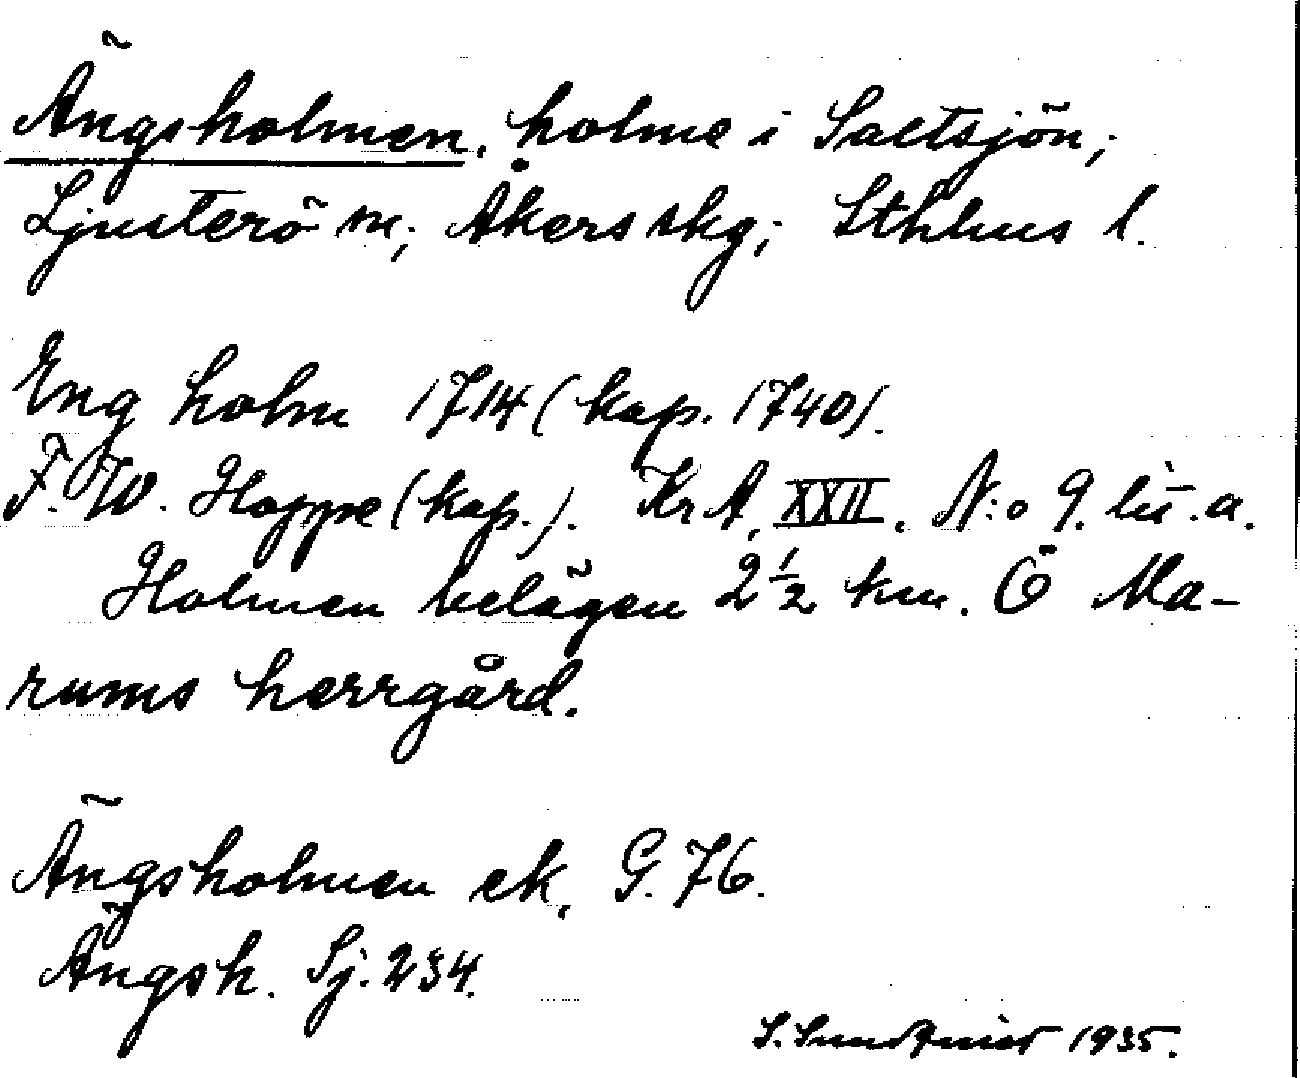 Ängsholmen, holme i Saltsjön;
Ljusterö sn; Åkers skg; Sthlms l.
Eng holm 1714 (kop. 1740).
F. W. Hoppe (kop.). KrA, XXII. N:o 9. lit. a.
Holmen belägen 2½ km. Ö Ma-
rums herrgård.
Ängsholmen ek. G. 76.
Ängsh. Sj. 234.
S. 1935.